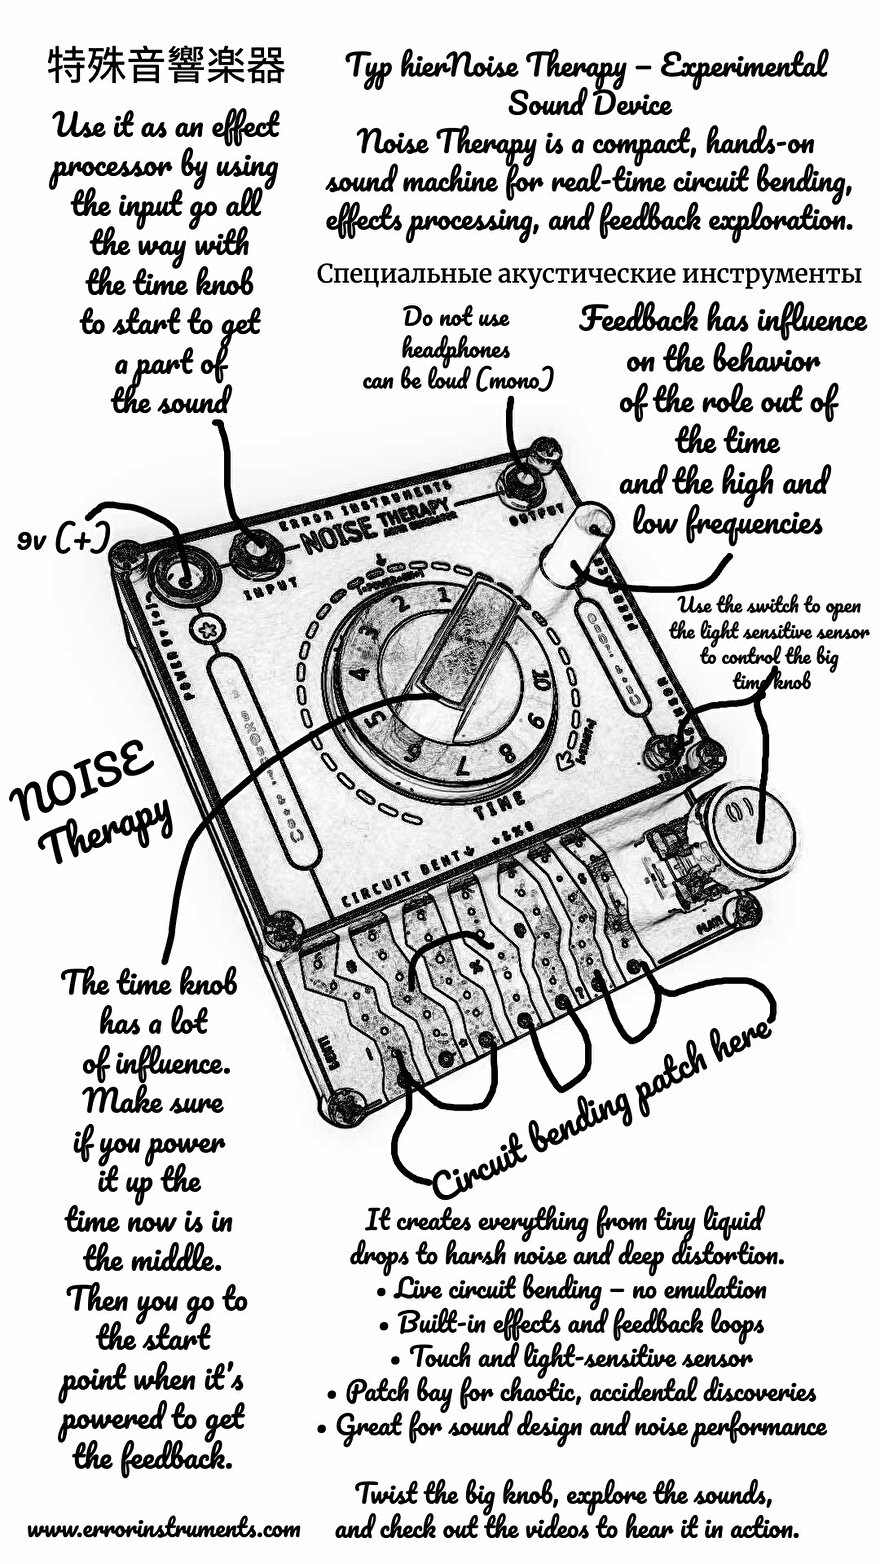 特殊音響楽器
Use it as an effect
processor by using
the input go all
the way with
the time knob
to start to get
a part of
the sound
Typ hierNoise Therapy – Experimental
Sound Device
Noise Therapy is a compact, hands-on
sound machine for real-time circuit bending,
effects processing, and feedback exploration.
Специальные акустические инструменты
Do not use
headphones
can be loud (mono)
Feedback has influence
on the behavior
of the role out of
the time
and the high and
low frequencies
9v (+)
Use the switch to open
the light sensitive sensor
to control the big
time knob
ERROR INSTRUMENTS
NOISE THERAPY
INPUT
OUTPUT
1
2
3
4
5
6
7
8
9
10
TIME
CIRCUIT BENT
PLAY
NOISE
Therapy
The time knob
has a lot
of influence.
Make sure
if you power
it up the
time now is in
the middle.
Then you go to
the start
point when it's
powered to get
the feedback.
Circuit bending patch here
It creates everything from tiny liquid
drops to harsh noise and deep distortion.
• Live circuit bending – no emulation
• Built-in effects and feedback loops
• Touch and light-sensitive sensor
• Patch bay for chaotic, accidental discoveries
• Great for sound design and noise performance
Twist the big knob, explore the sounds,
and check out the videos to hear it in action.
www.errorinstruments.com